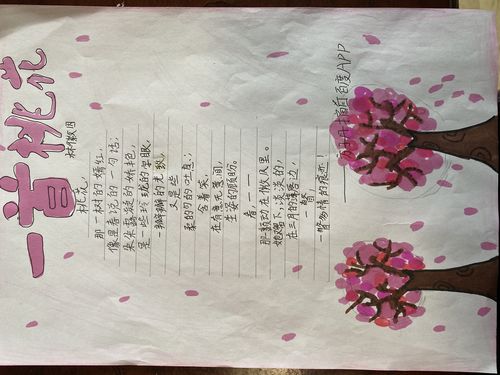 一首桃花
林徽因
桃花,
那一树的嫣红,
像是春说的一句话;
朵朵露凝的娇艳,
是一些玲珑的字眼,
一瓣瓣的光致,
又是些
柔的匀的吐息;
含着笑,
在有意无意间,
生姿的顾盼。
看——
那颤动在微风里。
她又留下,淡淡的,
在三月的薄唇边,
一瞥,
一瞥多情的痕迹!
摘自百度APP